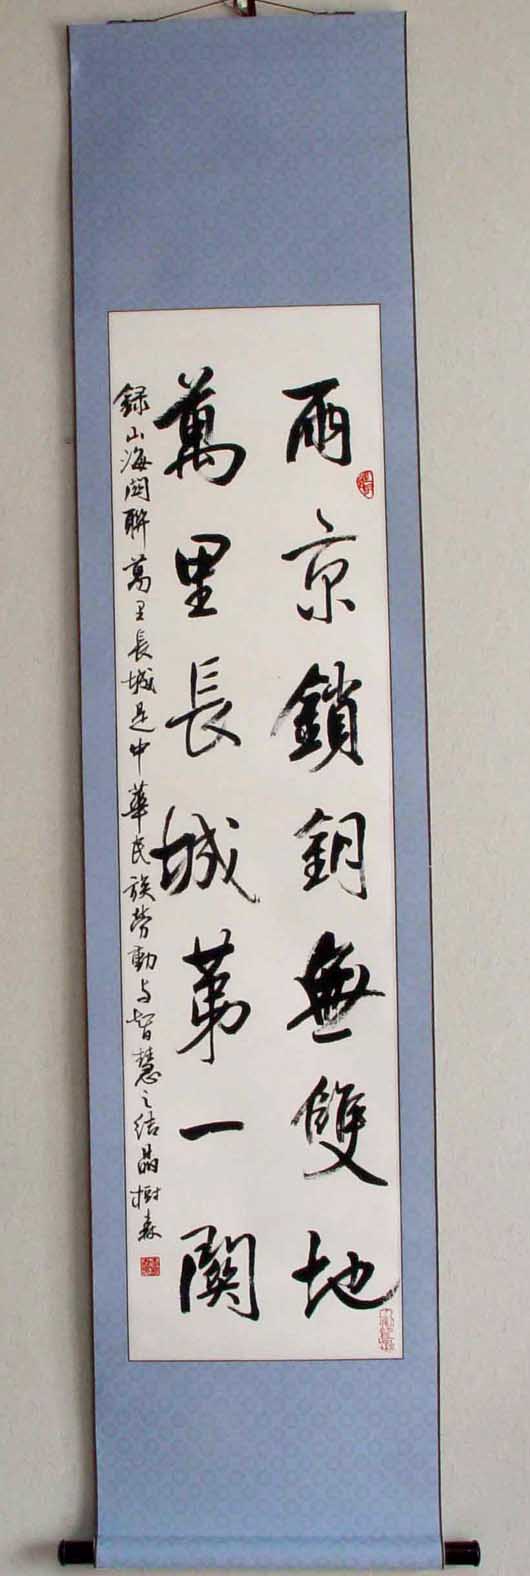 兩京鎖鑰無雙地
萬里長城第一關
録山海関聯萬里長城是中華民族勞動与智慧之結晶樹森